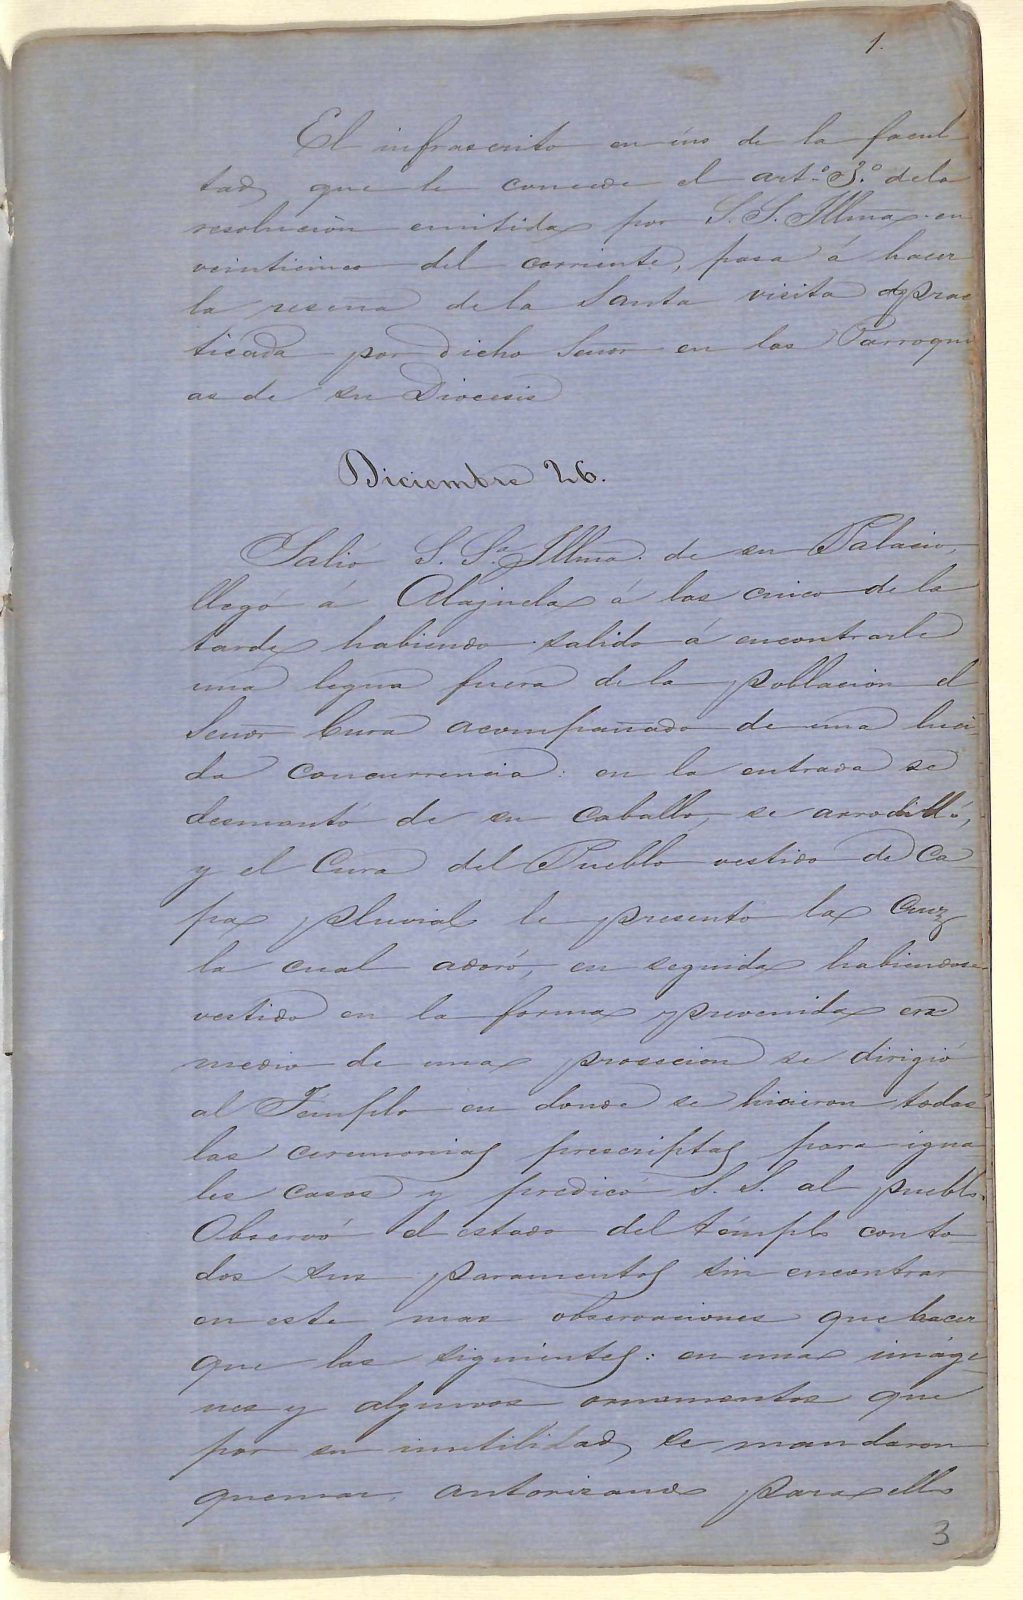 1.
El infrascrito en úso de la facul
tad que le concede el art.º 3.º de la
resolución emitida por S. S. Illma. en
veinticinco del corriente, pasa á hacer
la resena de la Santa visita prac
ticada por dicho Senor en las Parroqui
as de su Diocesis
Diciembre 26.
Salió S. Sª Illma. de su Palacio,
llegó á Alajuela á las cinco de la
tarde habiendo salido á encontrarle
una legua fuera de la poblacion el
Senor Cura acompañado de una luci
da concurrencia: en la entrada se
desmontó de su caballo, se arrodilló,
y el Cura del Pueblo vestido de Ca
pa pluvial le presentó la Cruz
la cual adoró, en seguida habiendose
vestido en la forma prevenida en
medio de una prosecion se dirigió
al Témplo en donde se hicieron todas
las ceremonias prescriptas para igua
les casos y predicó S. S. al pueblo.
Observó el estado del témplo con to
dos sus paramentos sin encontrar
en este mas observaciones que hacer
que las siguientes: en unas imáge-
nes y algunos ornamentos que
por su inutilidad se mandaron
quemar, autorizando para ello
3